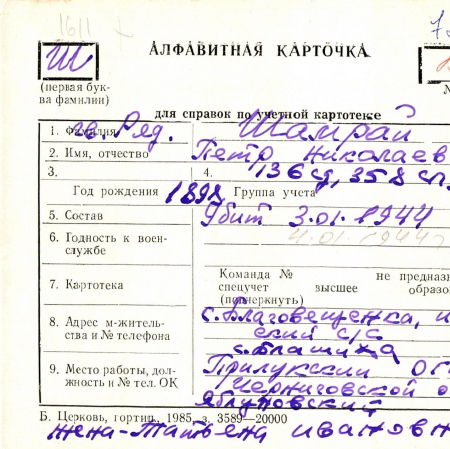 1611
Ш
АЛФАВИТНАЯ КАРТОЧКА
(первая бук-
ва фамилии)
для справок по учетной картотеке
1. Фамилия гв. Ряд. Шамрай
2. Имя, отчество Петр Николаев
3. 4. 136 сд, 358 сп
Год рождения 1898 Группа учета
5. Состав Убит 3.01.1944
6. Годность к воен-
службе
4.01.1944г
7. Картотека
Команда № не предназн
спецучет высшее образо
(подчеркнуть)
8. Адрес м-житель-
ства и № телефона
с. Благовещенка,
ский с/с
с. Блашиха
9. Место работы, дол-
жность и № тел. ОК
Прилукский
Черниговской о
Яблуновский
Б. Церковь, гортип., 1985, з. 3589—20000
жена - Татьяна Ивановн